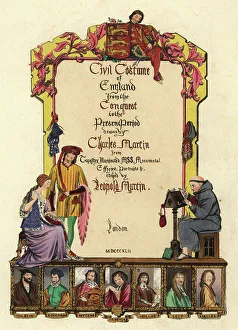 Civil Costume
of
England
from the
Conquest
to the
Present Period
drawn by
Charles Martin
from
Tapestry MSS. Monumental
Effigies, Portraits &c.
Leopold Martin.
London
MDCCCXLII